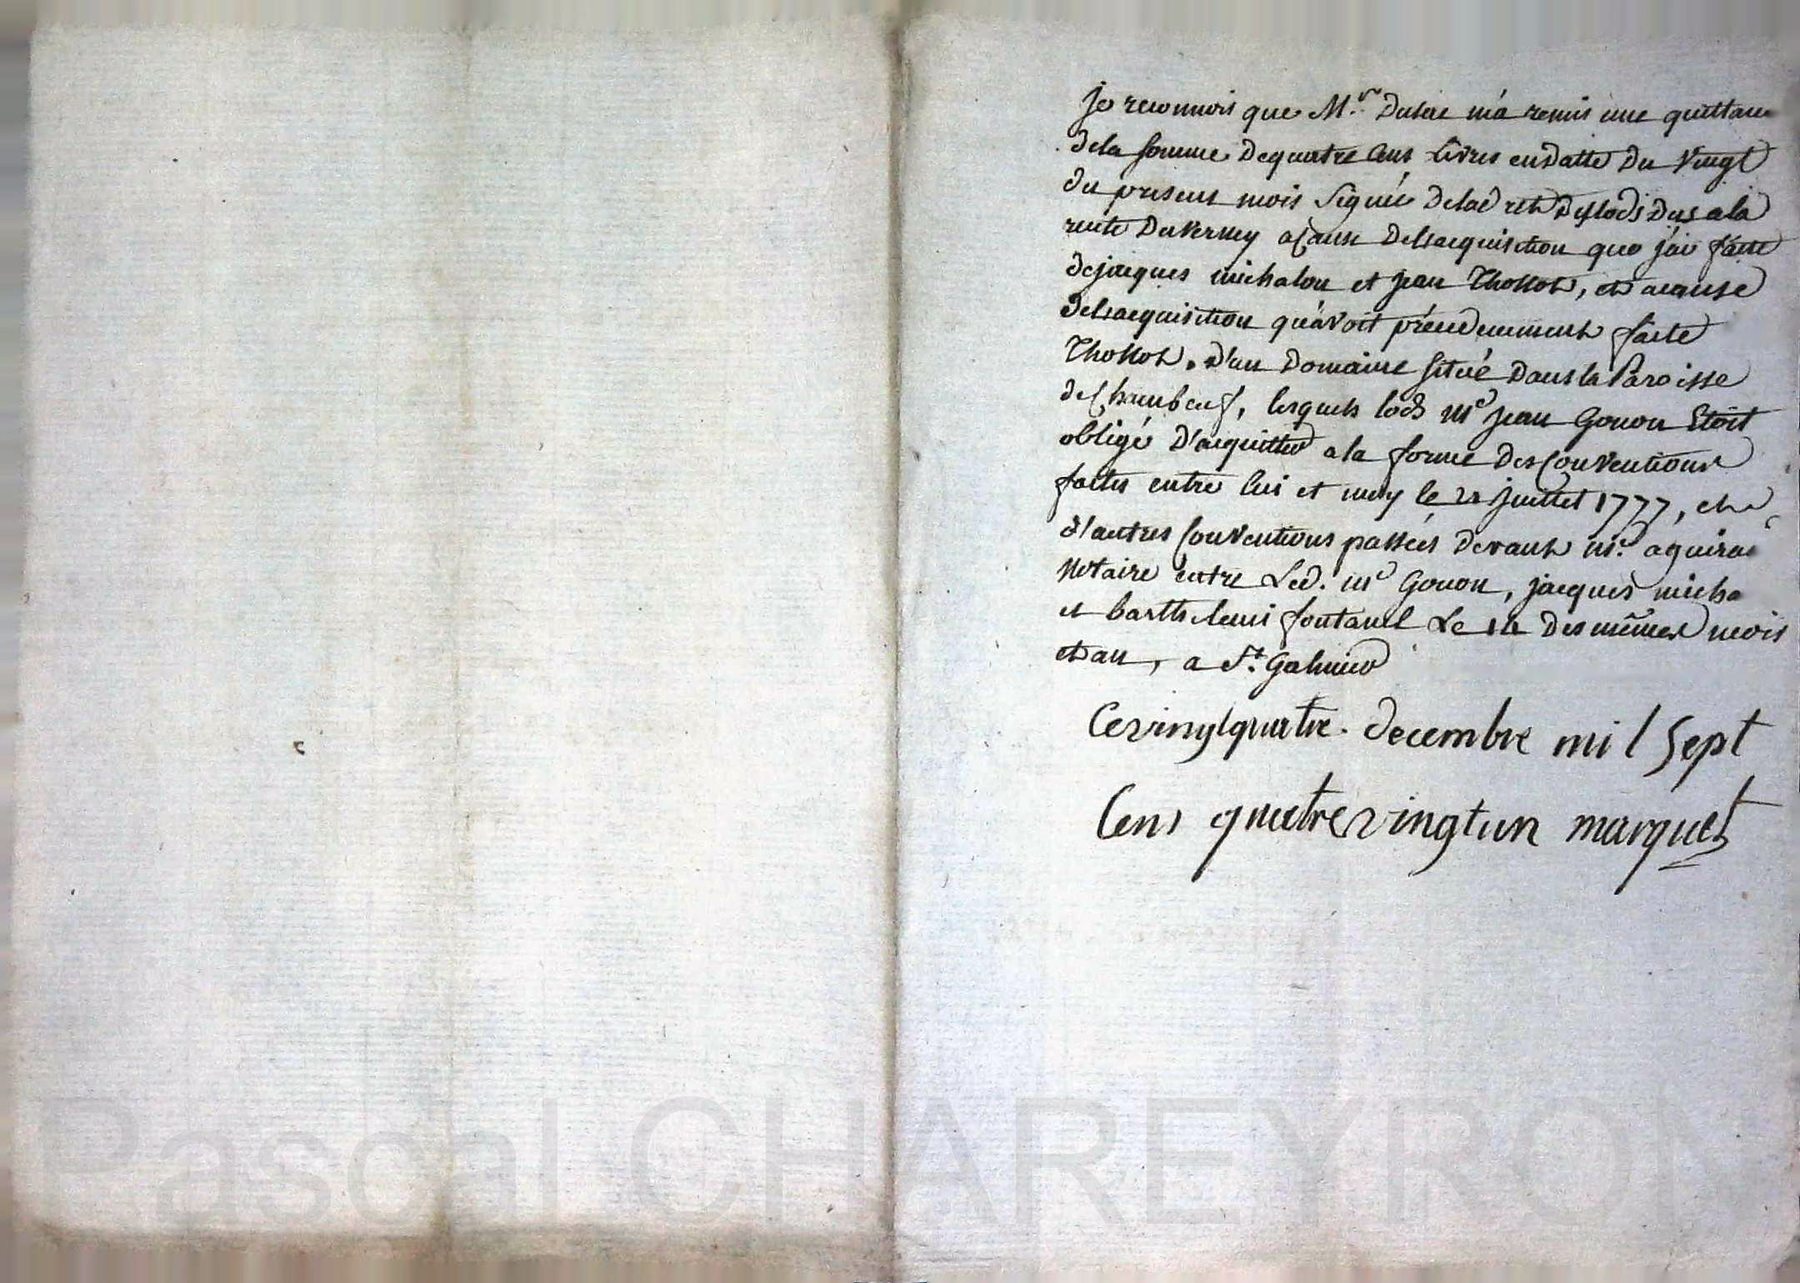 je reconnois que M.r Dulac m'a remis une quittance
de la somme de quatre cens livres en datte du vingt
du present mois signée des lods dus a la
rente Duverney a cause de l'acquisition que j'ai faite
de jacques michalon et jean Thollot, et a cause
de l'acquisition qu'avoit précédemment faite
Thollot, d'un Domaine situé dans la Paroisse
de Chambœuf, lesquels lods me jean Gonon Etoit
obligé D'acquitter a la forme des Conventions
faites entre lui et moy le juillet 1777, et
d'autres Conventions passées devant me. aguirai
Notaire entre Led. me Gonon, jacques micha
et Barthelemi fontanel Le 14 des mêmes mois
et an, a St. Galmier
Ce vingt quatre. decembre mil sept
Cens quatre vingt un marquet
Pascal CHAREYRON